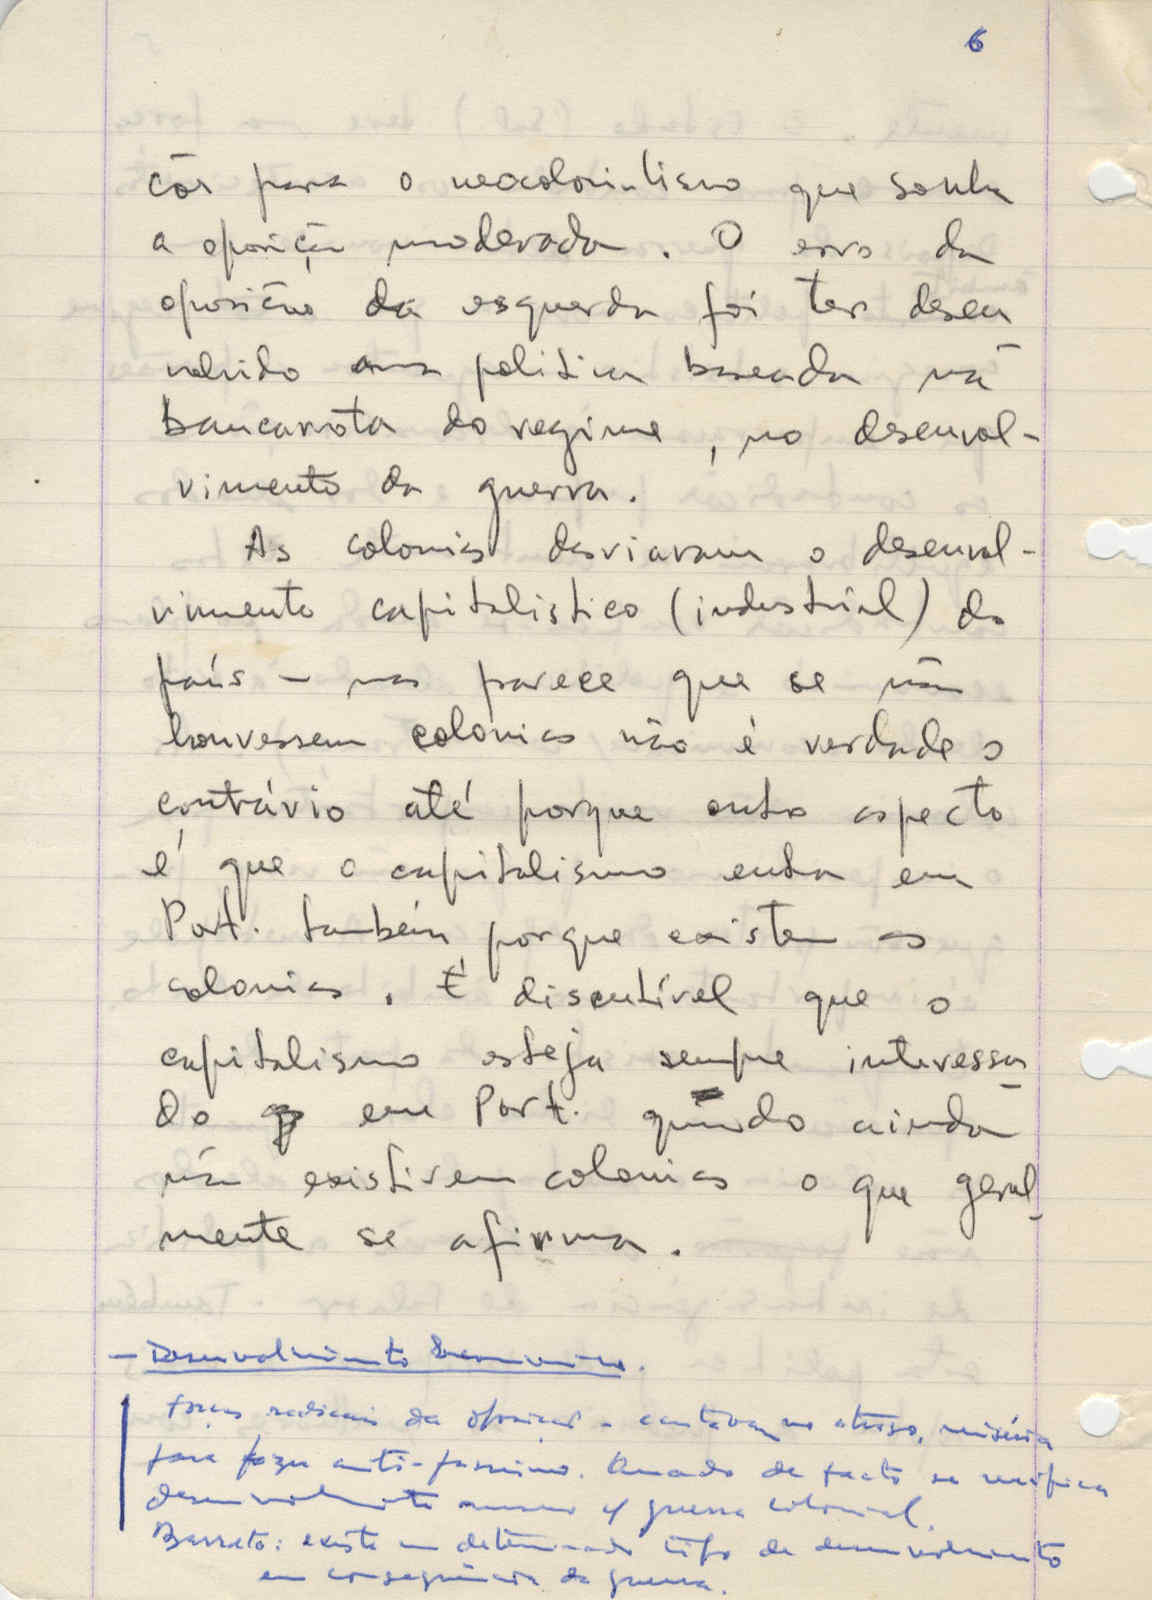 6
ção para o neocolonialismo que sonha
a oposição moderada. O erro da
oposição da esquerda foi ter desen
volvido uma politica baseada na
bancarrota do regime, no desenvol-
vimento da guerra.
As colonias desviavam o desenvol-
vimento capitalistico (industrial) do
país – mas parece que se não
houvessem colonias não é verdade o
contrário até porque outro aspecto
é que o capitalismo entra em
Port. também porque existem as
colonias. É discutível que o
capitalismo esteja sempre interessa
do em Port. quando ainda
não existirem colonias o que geral-
mente se afirma.
– Desenvolvimento Economico.
Forças radicais da oposição – contavam no atraso, miséria
para fazer anti-fascismo. Quando de facto se verifica
desenvolvimento mesmo c/ guerra colonial.
Barreto: existe um determinado tipo de desenvolvimento
em consequência da guerra.